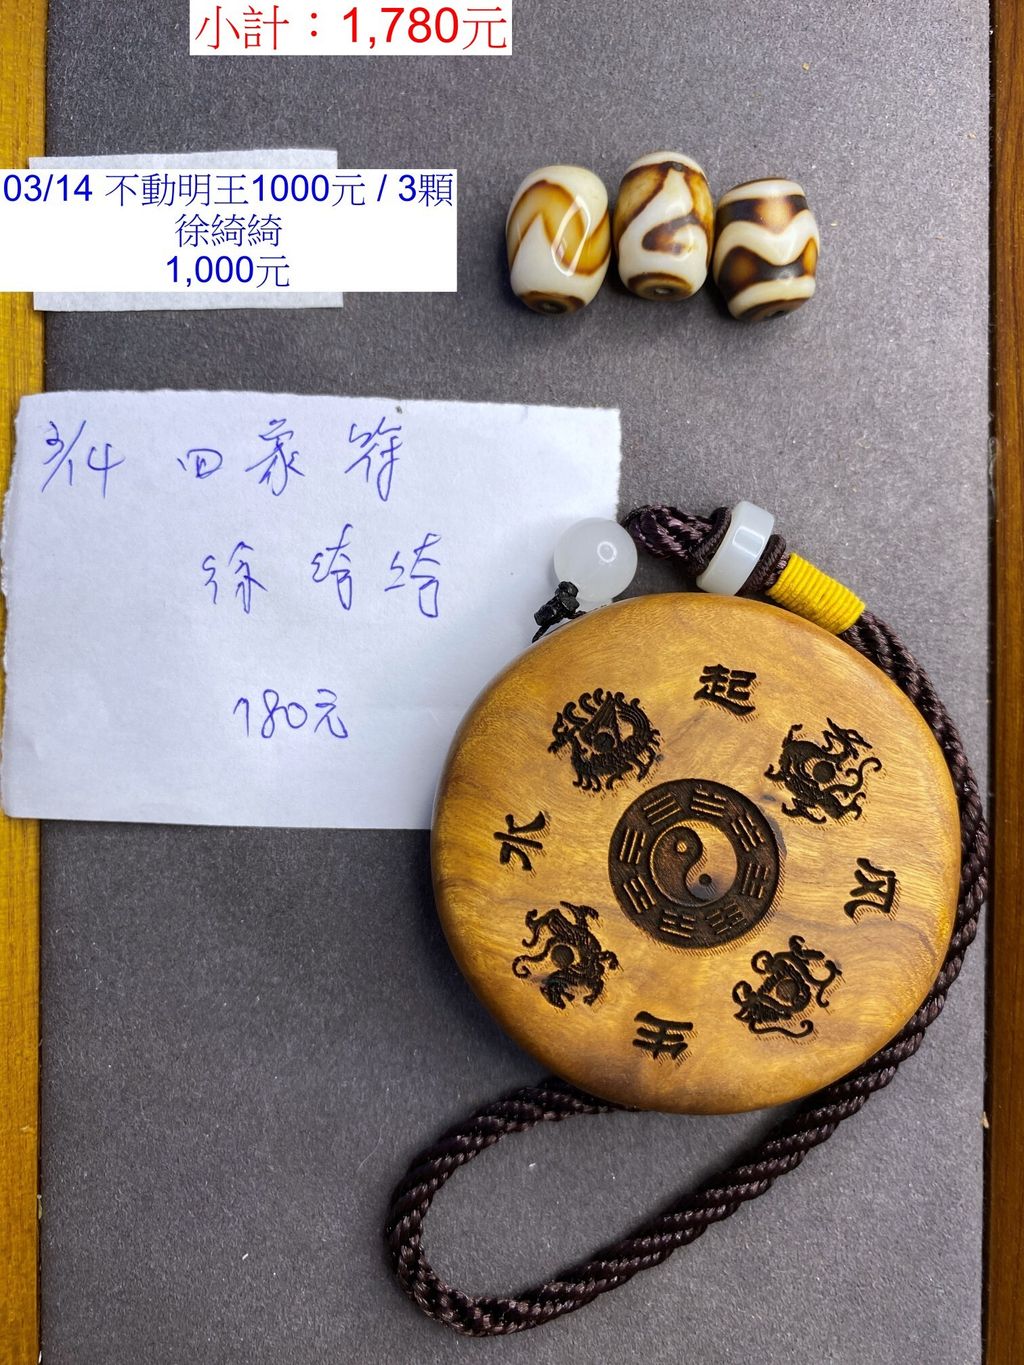 小計：1,780元
03/14 不動明王1000元 / 3顆
徐綺綺
1,000元
3/14 四象符
徐綺綺
780元
风生水起